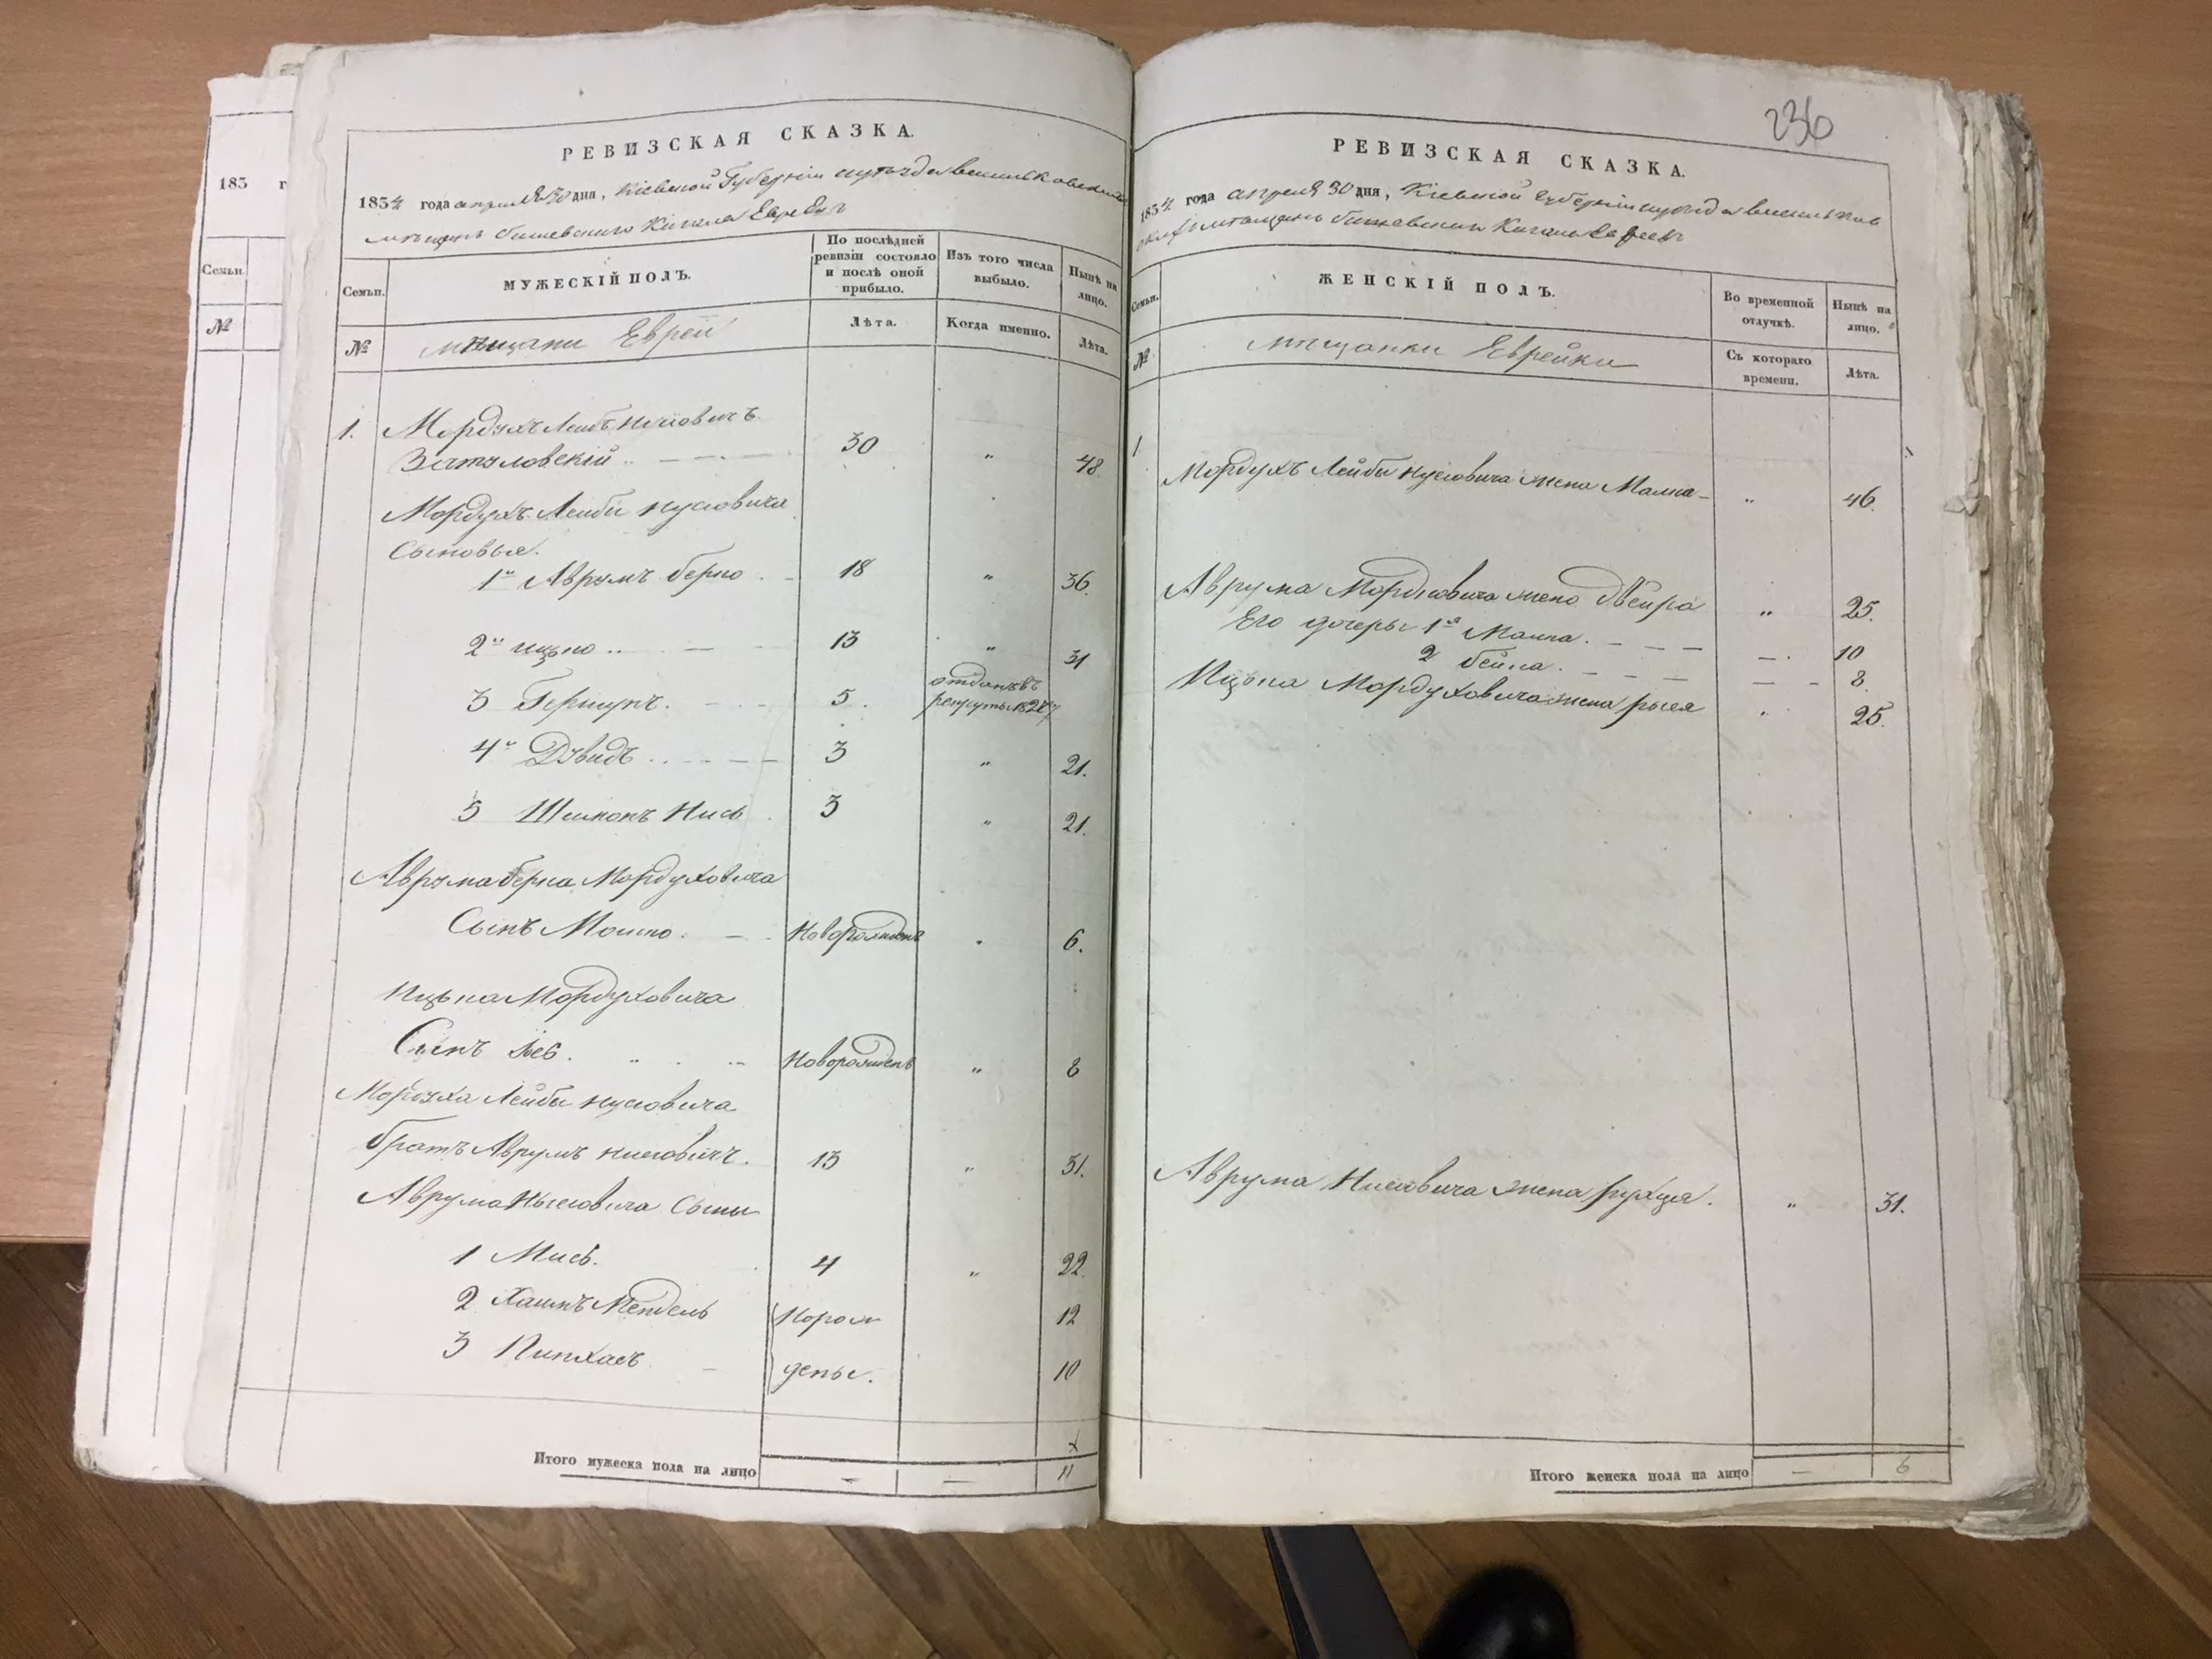 183 г
Семьи.
№
РЕВИЗСКАЯ СКАЗКА.
1834 года апреля 30 дня, Кіевской Губерніи
Кагала Евреевъ
Семьи.
МУЖЕСКІЙ ПОЛЪ.
По послѣдней ревизіи состояло и послѣ оной прибыло.
Изъ того числа выбыло.
Нынѣ на лицо.
№
мѣщани Евреи
Лѣта.
Когда именно.
Лѣта.
1. Мордухъ Лейбъ Нусіовичъ
30 „ 48.
Мордухъ Лейбы Нусіовича
Сыновья.
1й Аврумъ Берко 18 „ 36.
2й Ицько 13 „ 31
3 Гершунъ. 5. отданъ въ рекруты 1827
4й Дувидъ 3 „ 21.
5 Шимонъ Нисъ 3 „ 21.
Аврума Берка Мордуховича
Сынъ Мошко. Новорожденъ „ 6.
Ицька Мордуховича
Сынъ Новорожденъ „ 8
Мордуха Лейбы Нусіовича
братъ Аврумъ Нисіовичъ. 13 „ 31.
Аврума Нысіовича Сыны
1 4 „ 22.
2 Хаимъ Мендель Норож 12
3 Пинхасъ деные. 10
Итого мужеска пола на лицо — — 11
236
РЕВИЗСКАЯ СКАЗКА.
1834 года апреля 30 дня, Кіевской Губерніи
Кагала Евреевъ
Семьи.
ЖЕНСКІЙ ПОЛЪ.
Во временной отлучкѣ.
Нынѣ на лицо.
№
мѣщанки Еврейки
Съ котораго времени.
Лѣта.
1
Мордухъ Лейбы Нусіовича жена Малка „ 46.
Аврума Мордковича жена Двейра „ 25.
Его дочеры 1я Малка. — 10
2 Бейла. — 8.
Ицька Мордуховича жена рыся „ 25.
Аврума Нисіовича жена рухля. „ 31.
Итого женска пола на лицо — 6